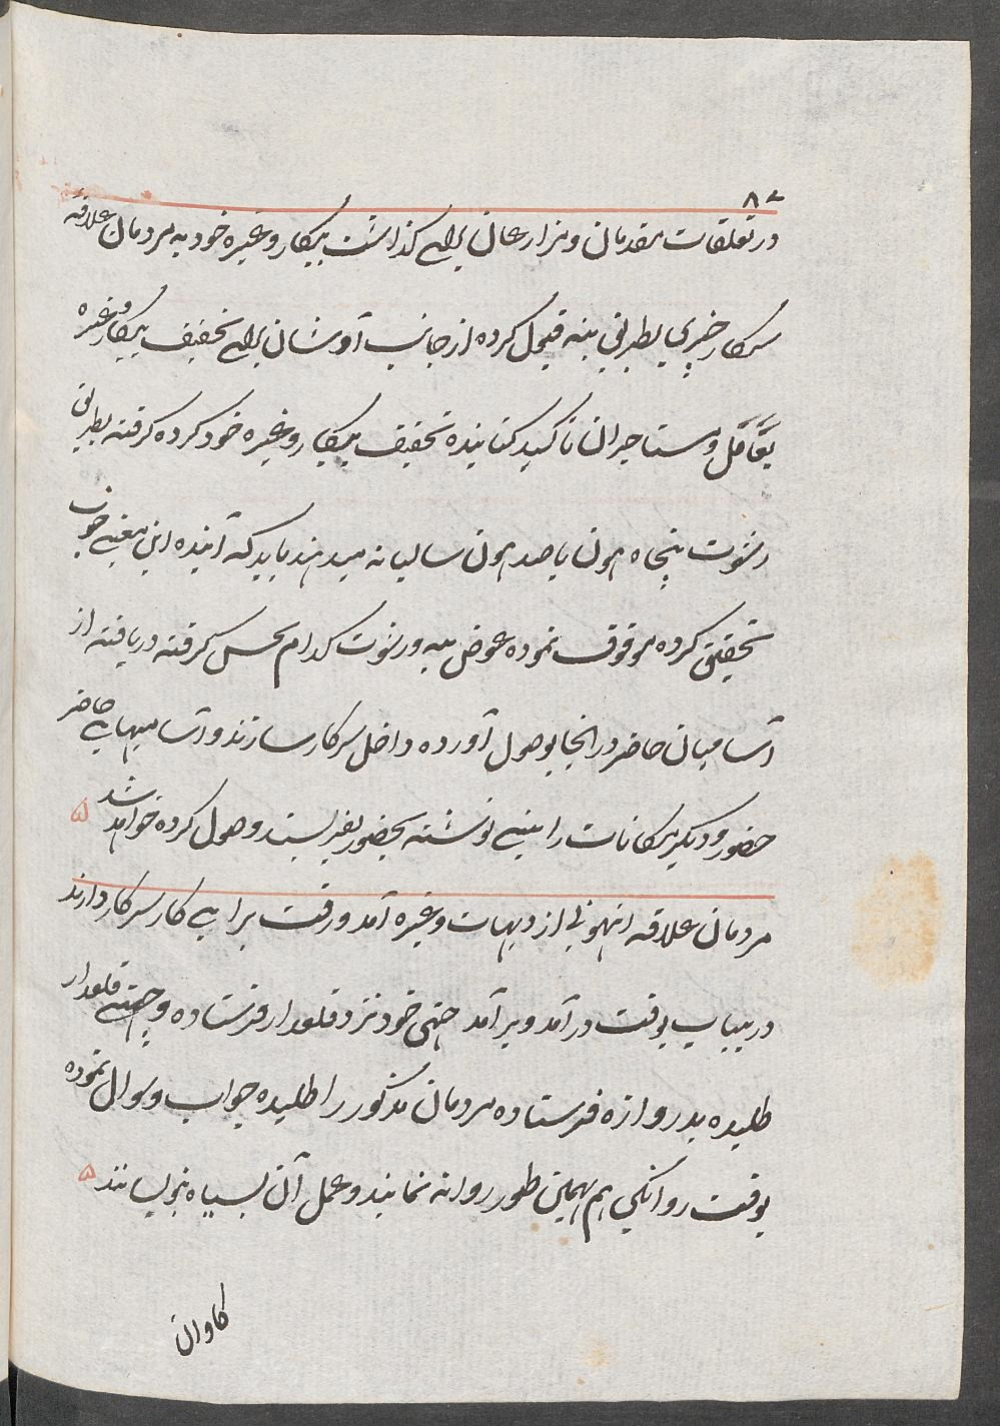 در تعلقات مقدمان و مزارعان برای گذاشت بیکار و غیره خود به مردمان علاقه
سرکار چیزی بطریق بنه قبول کرده از جانب آوشان برای تخفیف بیکار و غیره
و مستاجران تاکید کنانیده تخفیف بیکار و غیره خود کرده گرفته بطریق
رشوت پنجاه هون یا صد هون سالیانه میدهند باید که آینده این معنی خوب
تحقیق کرده موقوف نموده عوض و رشوت کدام کس گرفته دریافته از
آسامیان حاضر در آنجا بوصول آورده داخل سرکار سازند و آسامیهای حاضر
حضور و دیگر مکانات را نوشته بحضور بفریسند وصول کرده خواهد شد ۵
مردمان علاقه از دیهات و غیره آمد و رفت برای کار سرکار دارند
در بوقت در آمد و بر آمد چتی خود نزد قلعدار فرستاده و چتی قلعدار
طلبیده بدروازه فرستاده مردمان مذکور را طلبیده جواب و سوال نموده
بوقت روانگی هم بهمین طور روانه نمایند و عمل آن بسیاه نویسانند ۵
کاوان